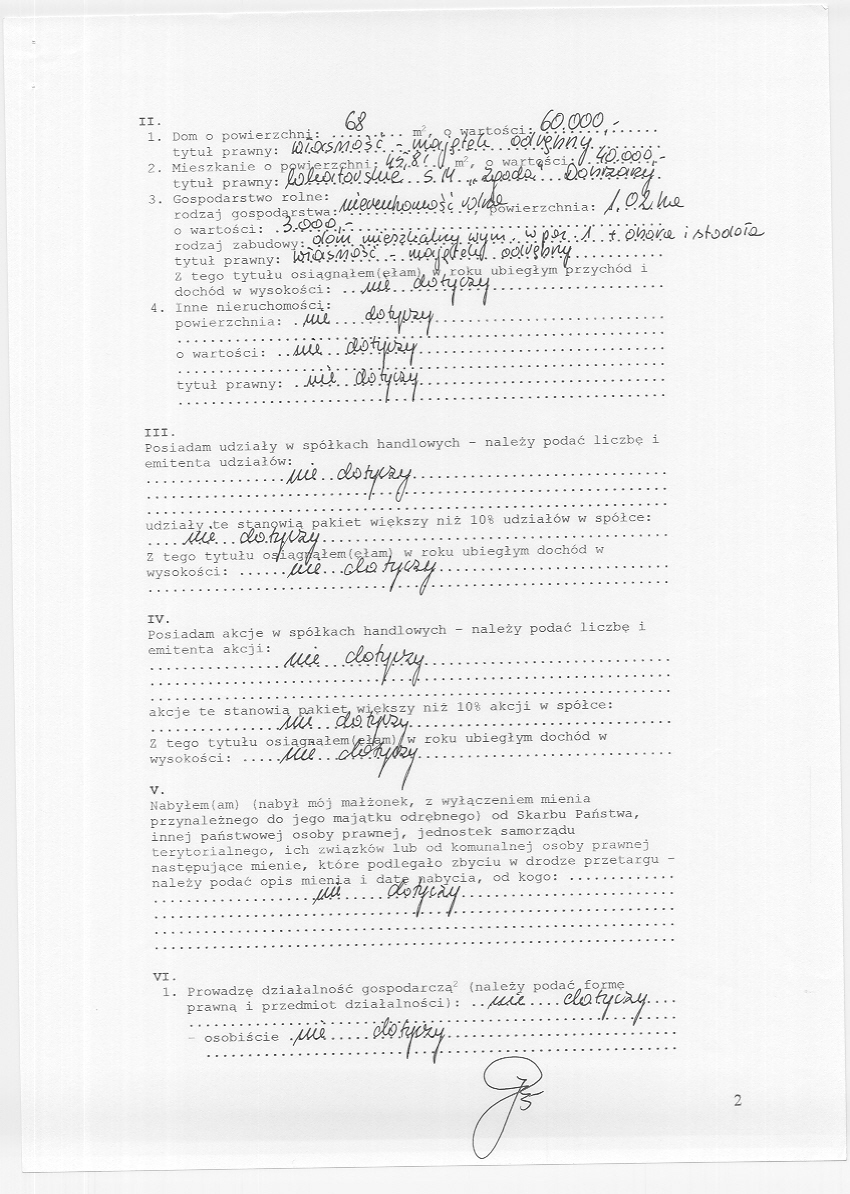 II.
1. Dom o powierzchni: 68 m², o wartości: 60.000,-
tytuł prawny: własność - majątek odrębny
2. Mieszkanie o powierzchni: m², o wartości: 40.000,-
tytuł prawny: lokatorskie S.M. „Zgoda"
3. Gospodarstwo rolne:
rodzaj gospodarstwa: nieruchomość rolna, powierzchnia: 1,02 ha
o wartości: 3.000,-
rodzaj zabudowy: dom mieszkalny wym. w pkt. 1 + obora i stodoła
tytuł prawny: własność - majątek odrębny
Z tego tytułu osiągnąłem(ęłam) w roku ubiegłym przychód i
dochód w wysokości: nie dotyczy
4. Inne nieruchomości:
powierzchnia: nie dotyczy
o wartości: nie dotyczy
tytuł prawny: nie dotyczy
III.
Posiadam udziały w spółkach handlowych - należy podać liczbę i
emitenta udziałów:
nie dotyczy
udziały te stanowią pakiet większy niż 10% udziałów w spółce:
nie dotyczy
Z tego tytułu osiągnąłem(ęłam) w roku ubiegłym dochód w
wysokości: nie dotyczy
IV.
Posiadam akcje w spółkach handlowych - należy podać liczbę i
emitenta akcji:
nie dotyczy
akcje te stanowią pakiet większy niż 10% akcji w spółce:
nie dotyczy
Z tego tytułu osiągnąłem(ęłam) w roku ubiegłym dochód w
wysokości: nie dotyczy
V.
Nabyłem(am) (nabył mój małżonek, z wyłączeniem mienia
przynależnego do jego majątku odrębnego) od Skarbu Państwa,
innej państwowej osoby prawnej, jednostek samorządu
terytorialnego, ich związków lub od komunalnej osoby prawnej
następujące mienie, które podlegało zbyciu w drodze przetargu -
należy podać opis mienia i datę nabycia, od kogo:
nie dotyczy
VI.
1. Prowadzę działalność gospodarczą² (należy podać formę
prawną i przedmiot działalności): nie dotyczy
- osobiście nie dotyczy
2